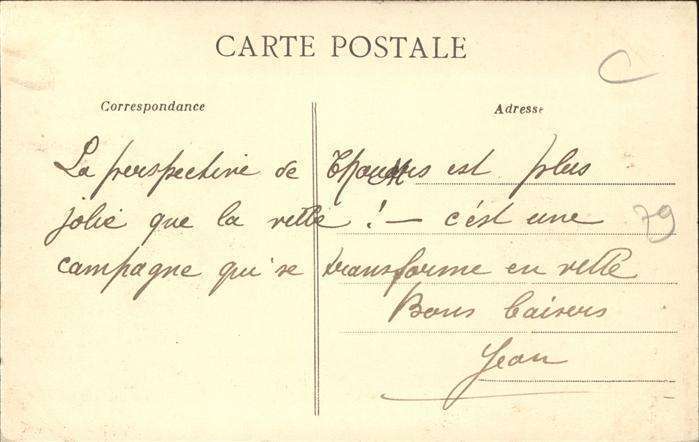 CARTE POSTALE
Correspondance
Adresse
La perspective de Thouars est plus
jolie que la ville ! — c'est une
campagne qui se transforme en ville
Bons baisers
Jean
C
79